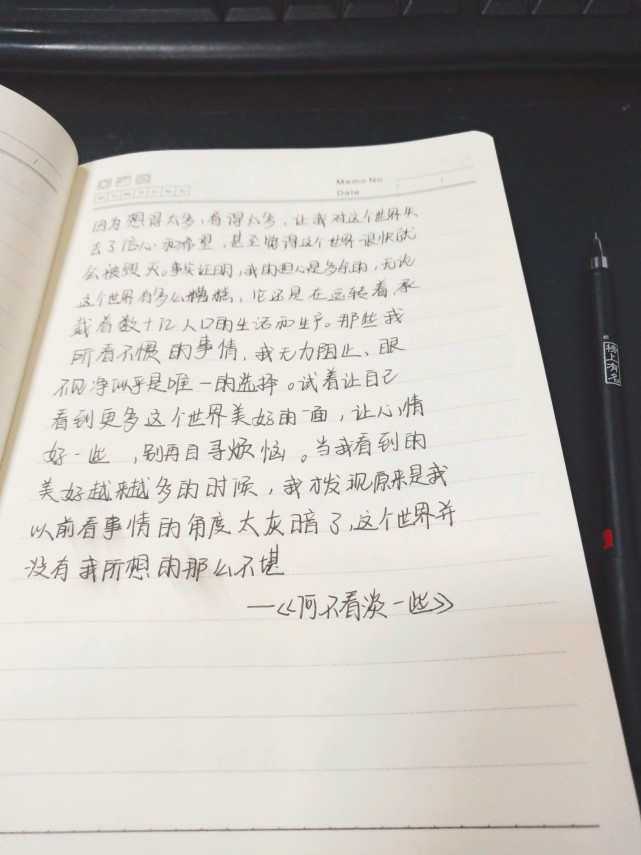 Memo No
Date
因为想得太多,看得太多,让我对这个世界失
去了信心和希望,甚至觉得这个世界很快就
会被毁灭。事实证明,我的担心是多余的,无论
这个世界有多么糟糕,它还是在运转着,承
载着数十亿人口的生活和生产。那些我
所看不惯的事情,我无力阻止、眼
不见净似乎是唯一的选择。试着让自己
看到更多这个世界美好的一面,让心情
好一些,别再自寻烦恼。当我看到的
美好越来越多的时候,我才发现原来是我
以前看事情的角度太灰暗了,这个世界并
没有我所想的那么不堪
—《何不看淡一些》
榜上有名